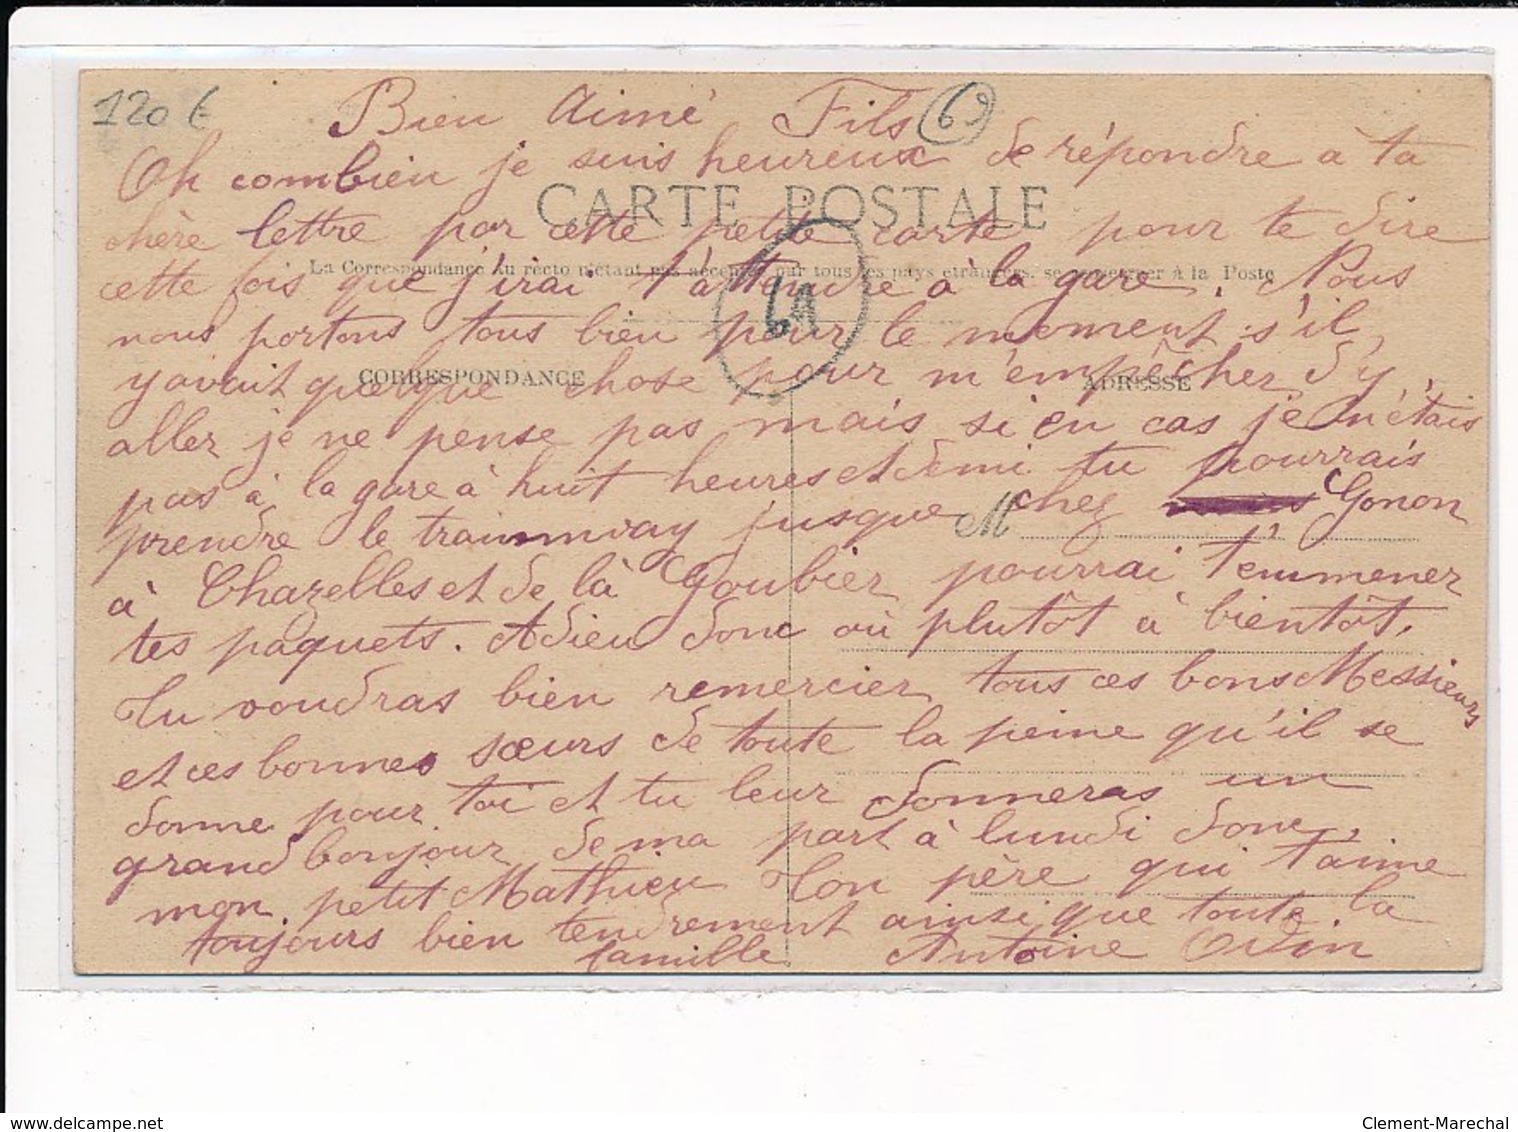 120 €
Bien Aimé Fils
69
Oh combien je suis heureux de répondre à ta
CARTE POSTALE
chère lettre par cette petite carte pour te dire
La Correspondance au recto n'étant pas acceptée par tous les pays étrangers, se renseigner à la Poste
cette fois que j'irai t'attendre à la gare. Nous
69
nous portons tous bien pour le moment s'il
CORRESPONDANCE
ADRESSE
y avait quelque chose pour m'empêcher d'y
aller je ne pense pas mais si en cas je n'étais
pas à la gare à huit heures et demi tu pourrais
prendre le trammway jusque chez Gonon
M
à Chazelles et de là Goubier pourrai t'emmener
tes paquets. Adieu donc où plutôt à bientôt.
Tu voudras bien remercier tous ces bons Messieurs
et ces bonnes sœurs de toute la peine qu'il se
donne pour toi et tu leur donneras un
grand bonjour de ma part à lundi donc,
mon petit Mathieu Ton père qui t'aime
toujours bien tendrement ainsi que toute la
famille Antoine Odin
www.delcampe.net
Clement-Marechal